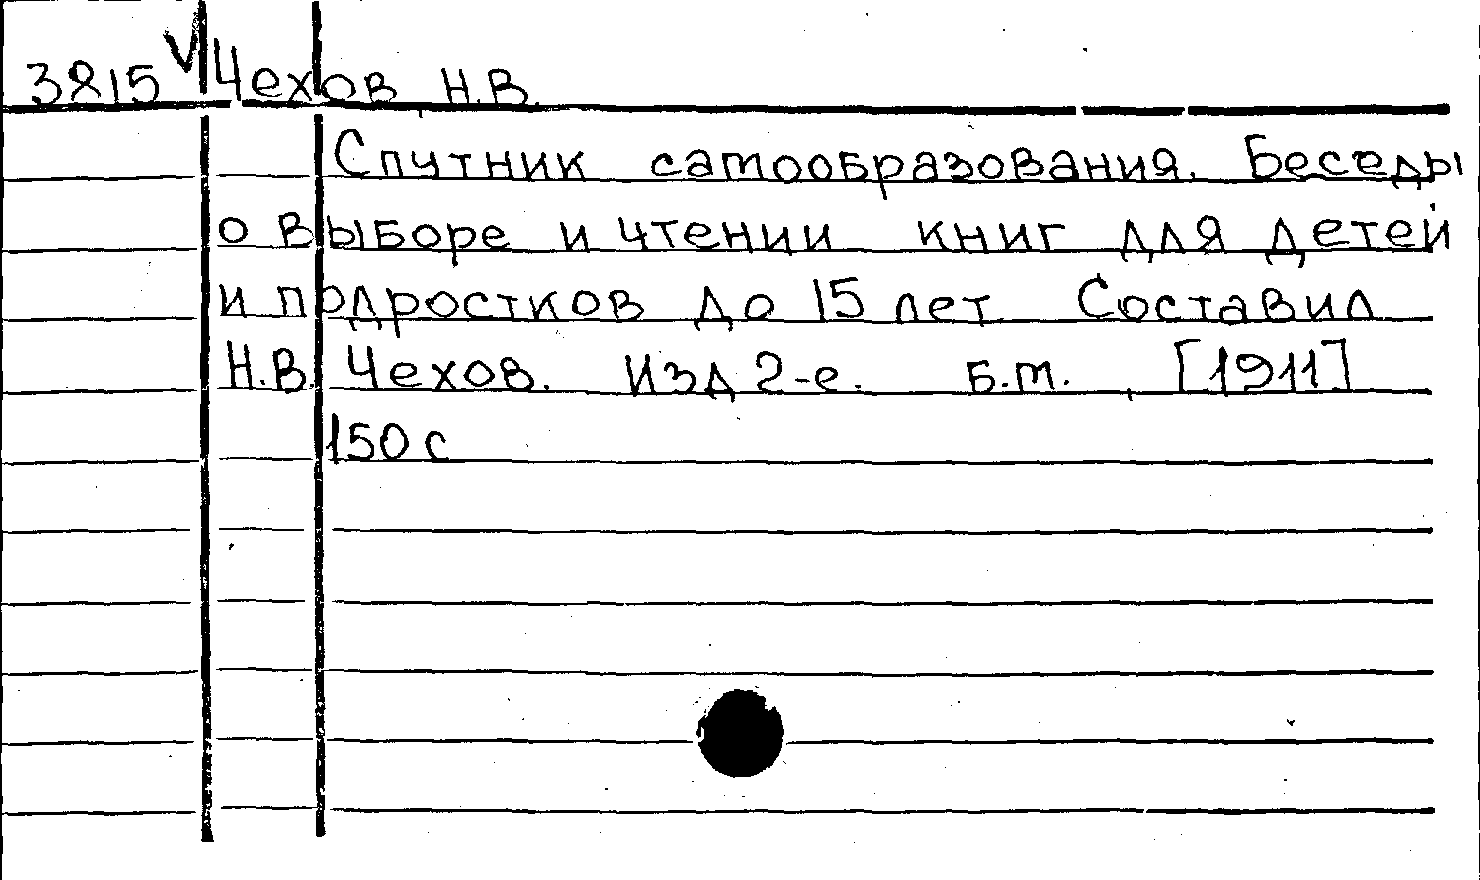 3815 V Чехов, Н.В.
Спутник самообразования. Беседы
о выборе и чтении книг для детей
и подростков до 15 лет. Составил
Н.В. Чехов. Изд 2-е. б.т., [1911]
150 с